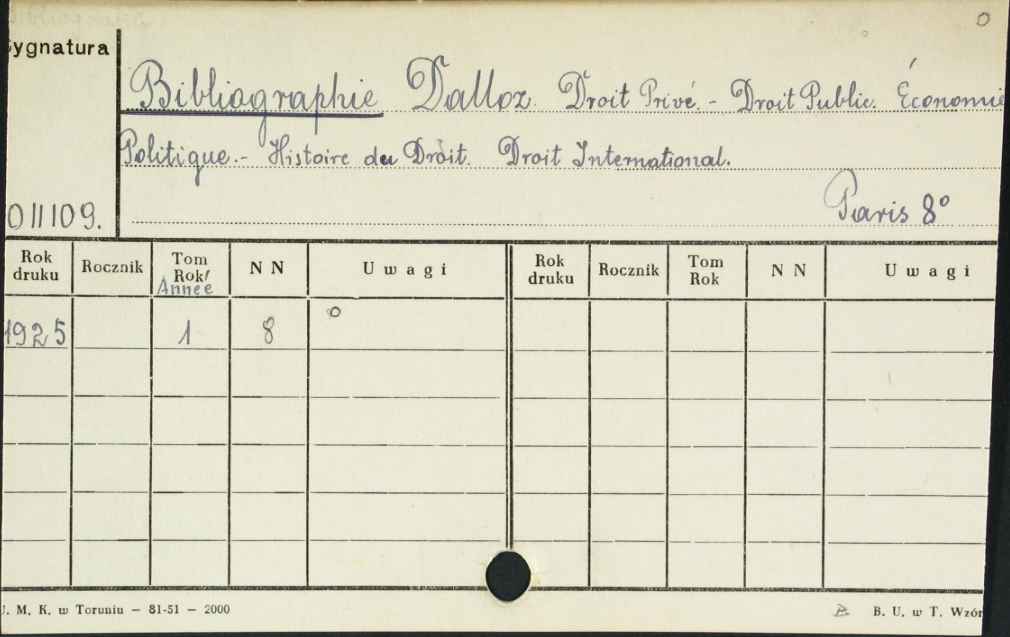 ygnatura
Bibliographie Dalloz. Droit Privé. - Droit Public. Économie
Politique. - Histoire du Droit. Droit International.
011109. Paris 8°
Rok druku Rocznik Tom Rok/ Année N N Uwagi Rok druku Rocznik Tom Rok N N Uwagi
1925 1 8 o
. M. K. w Toruniu — 81-51 — 2000 B. U. w T. Wzór